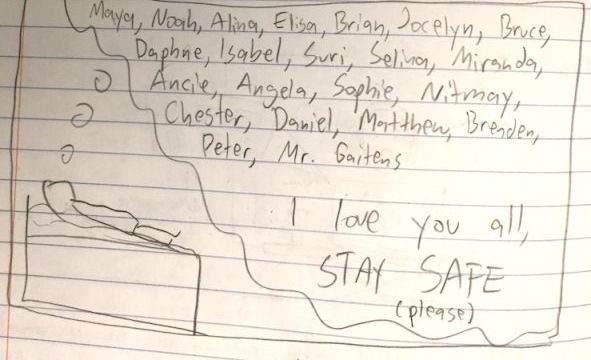 Maya, Noah, Alina, Elisa, Brian, Jocelyn, Bruce,
Daphne, Isabel, Suri, Selina, Miranda,
Ancie, Angela, Sophie, Nitmay,
Chester, Daniel, Matthew, Brenden,
Peter, Mr. Gaitens
I love you all,
STAY SAFE
(please)